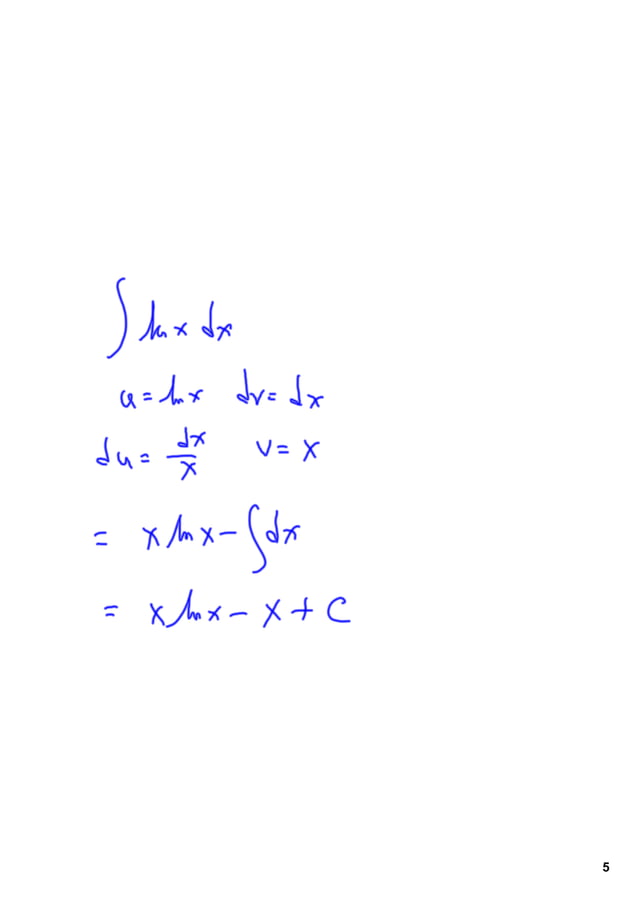 ∫ ln x dx
u = ln x   dv = dx
du = dx/x   v = x
= x ln x − ∫ dx
= x ln x − x + C
5